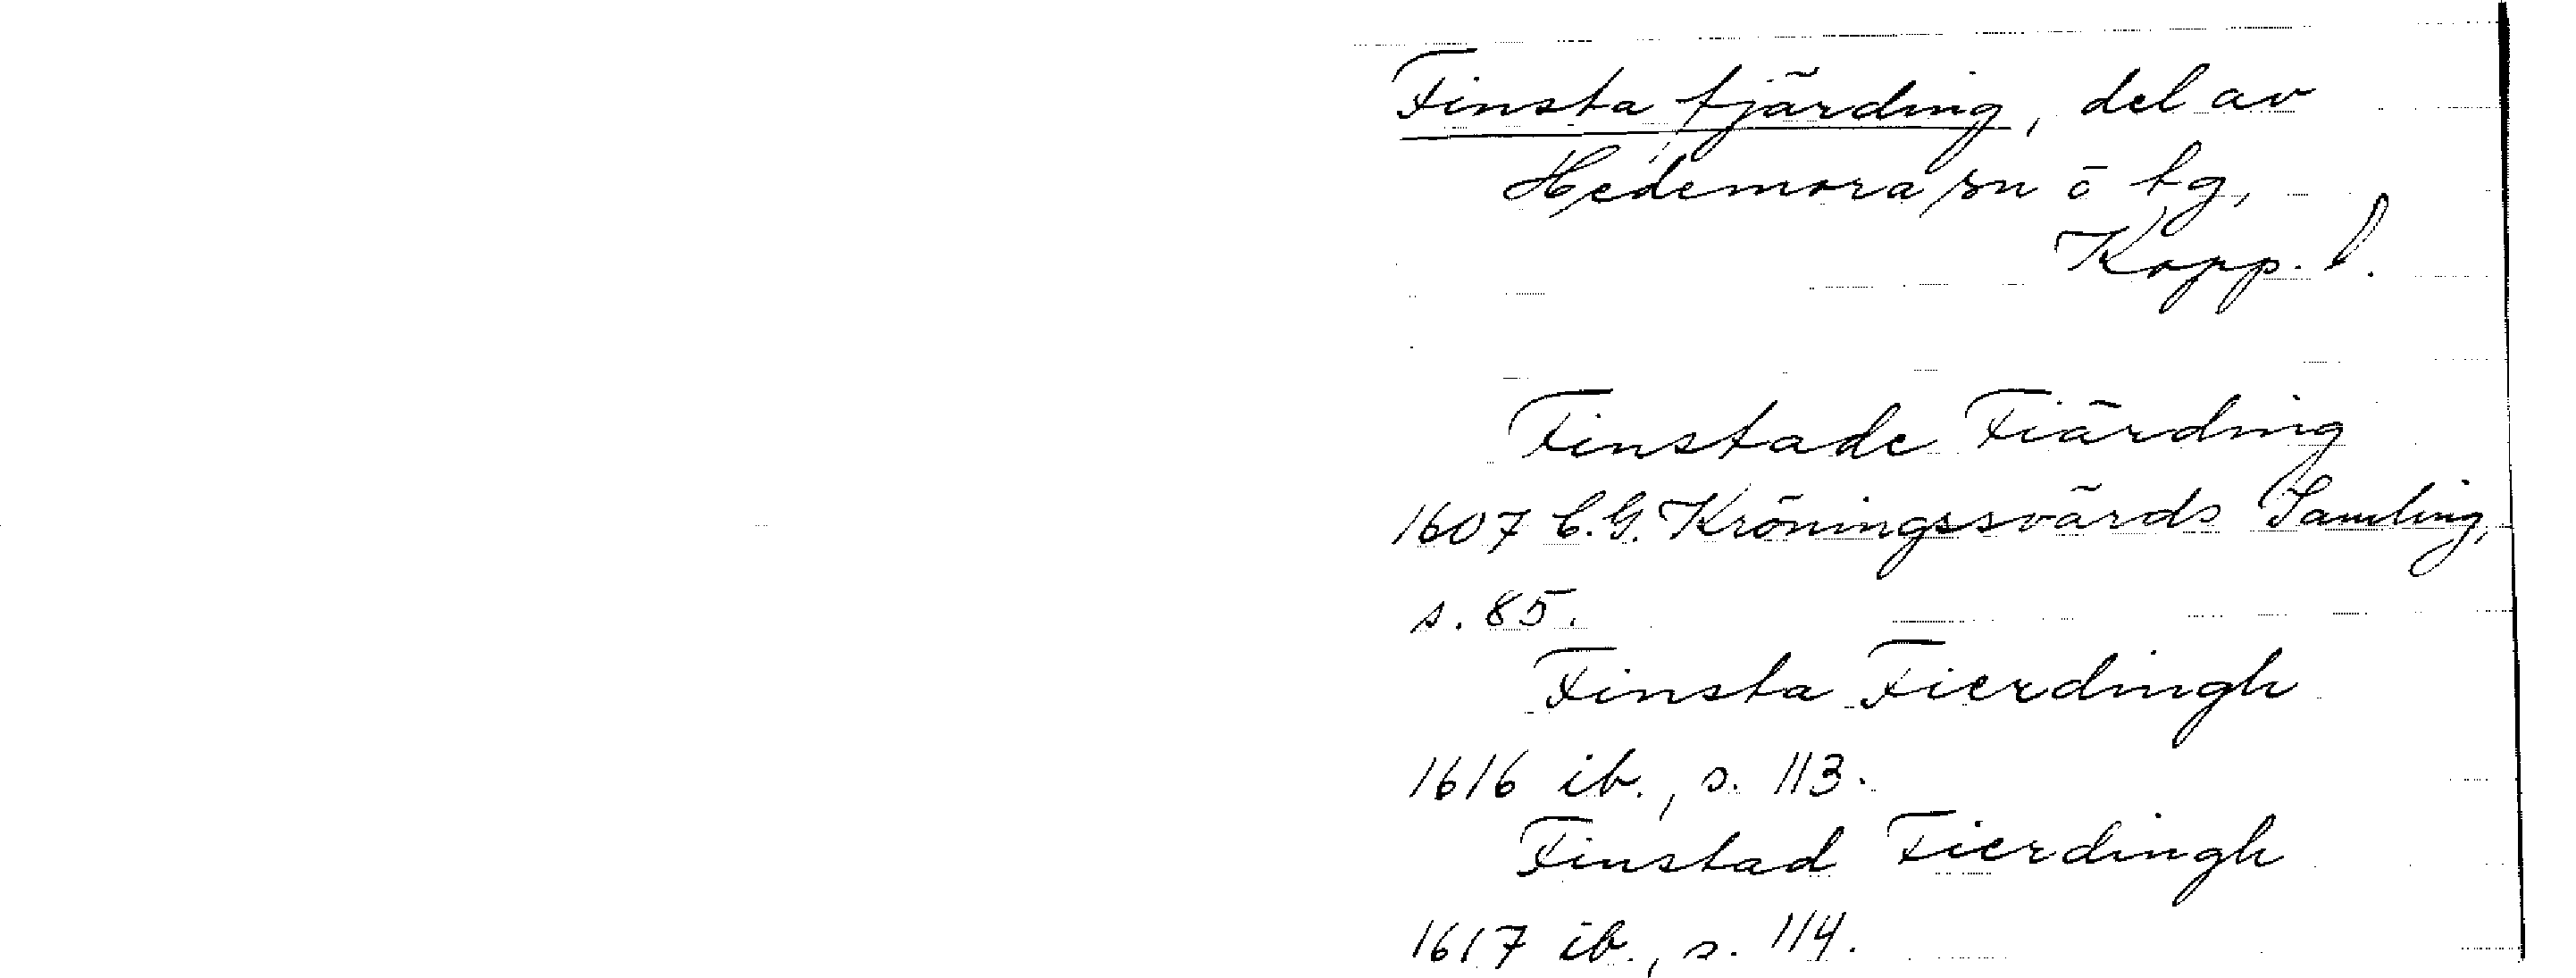 Finsta fjärding, del av
Hedemora sn o tg,
Kopp. l.
Finstade Fiärding
1607 C.G. Kröningssvärds Samling,
s. 85.
Finsta Fierdingh
1616 ib., s. 113.
Finstad Fierdingh
1617 ib., s. 114.